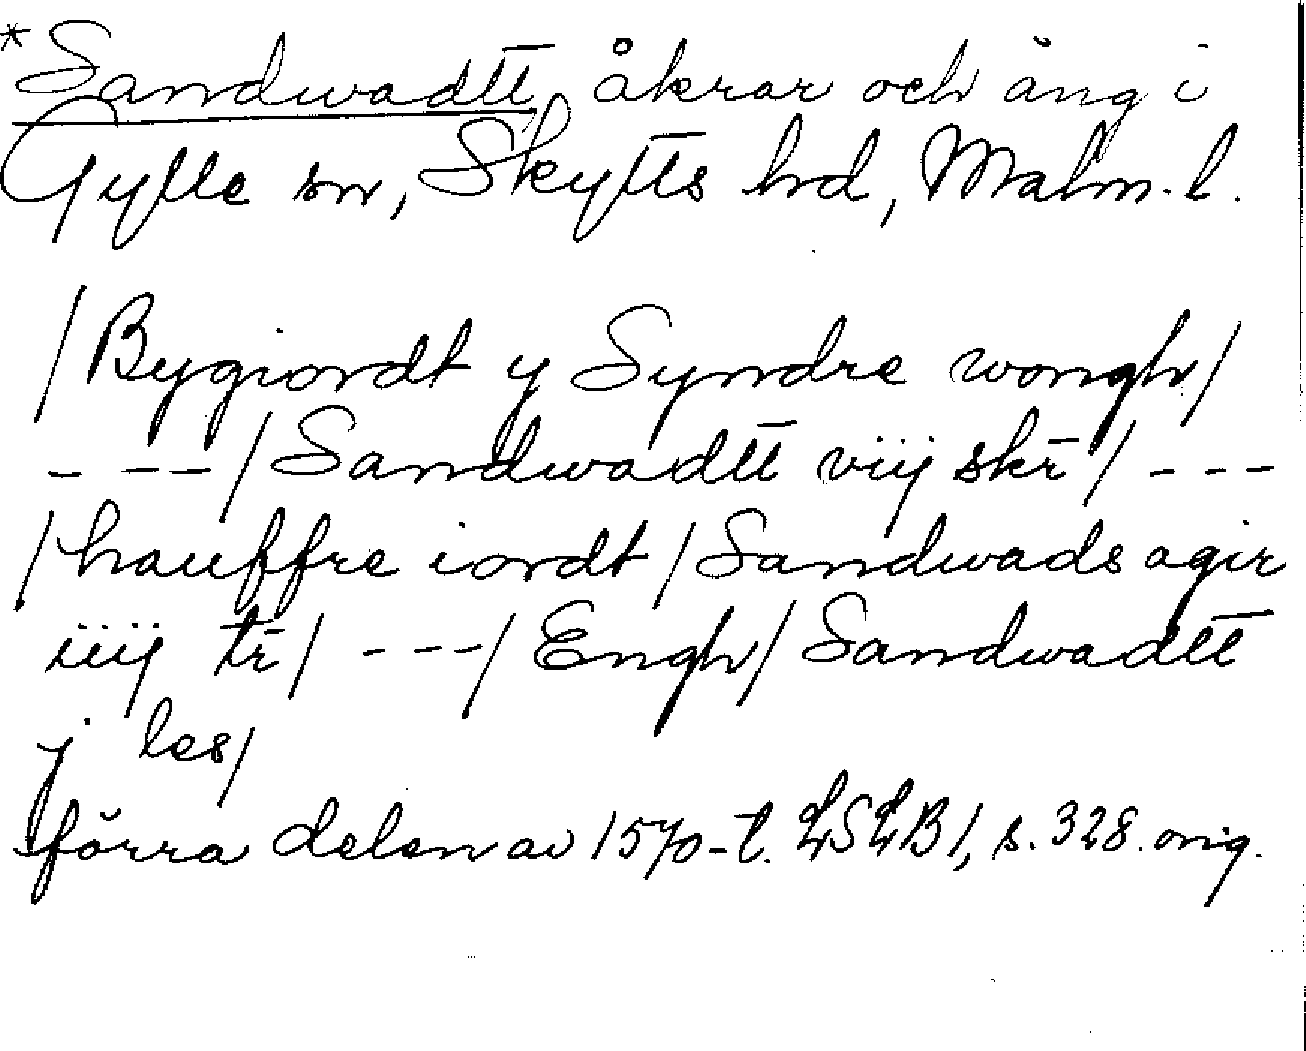 *Sandwadtt, åkrar och äng i
Gylle sn, Skytts hd, Malm. l.
/Bygiordt y Syndre wongh/
- - - -/Sandwadtt viij skr̄/ - - -
/hauffre iordt/Sandwads agir
iiij tr̄/ - - - -/Engh/Sandwadtt
j les/
förra delen av 1570-t. LSLB1, s. 328. orig.